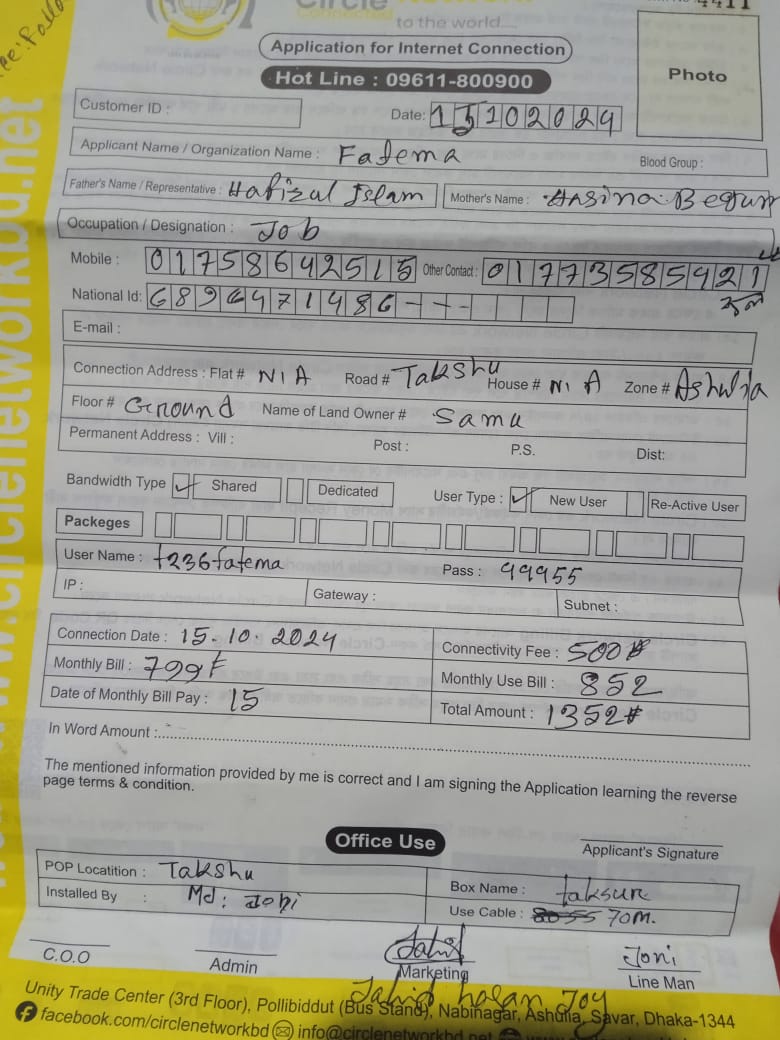 Circle Network
Connected to the world....
4411
Application for Internet Connection
Hot Line : 09611-800900
Photo
Customer ID :
Date: 15102024
Applicant Name / Organization Name : Fatema
Blood Group :
Father's Name / Representative : Hafizul Islam Mother's Name : Hasina Begum
Occupation / Designation : Job
Mobile : 01758642515 Other Contact : 01773585421
National Id: 6896471486 - - -
E-mail :
Connection Address : Flat # N/A Road # Takshu House # N/A Zone # Ashulia
Floor # Ground Name of Land Owner # Samu
Permanent Address : Vill : Post : P.S. Dist:
Bandwidth Type ✓ Shared Dedicated User Type : ✓ New User Re-Active User
Packeges
User Name : t236fatema Pass : 99955
IP : Gateway : Subnet :
Connection Date : 15.10.2024 Connectivity Fee : 500
Monthly Bill : 799 Monthly Use Bill : 852
Date of Monthly Bill Pay : 15 Total Amount : 1352
In Word Amount :
The mentioned information provided by me is correct and I am signing the Application learning the reverse
page terms & condition.
Office Use
Applicant's Signature
POP Locatition : Takshu Box Name : taksur
Installed By : Md: Jobi Use Cable : 70m.
Jahid Joni
C.O.O Admin Marketing Line Man
Jahid hasan Joy
Unity Trade Center (3rd Floor), Pollibiddut (Bus Stand), Nabinagar, Ashulia, Savar, Dhaka-1344
facebook.com/circlenetworkbd info@circlenetworkbd.net
www.circlenetworkbd.net